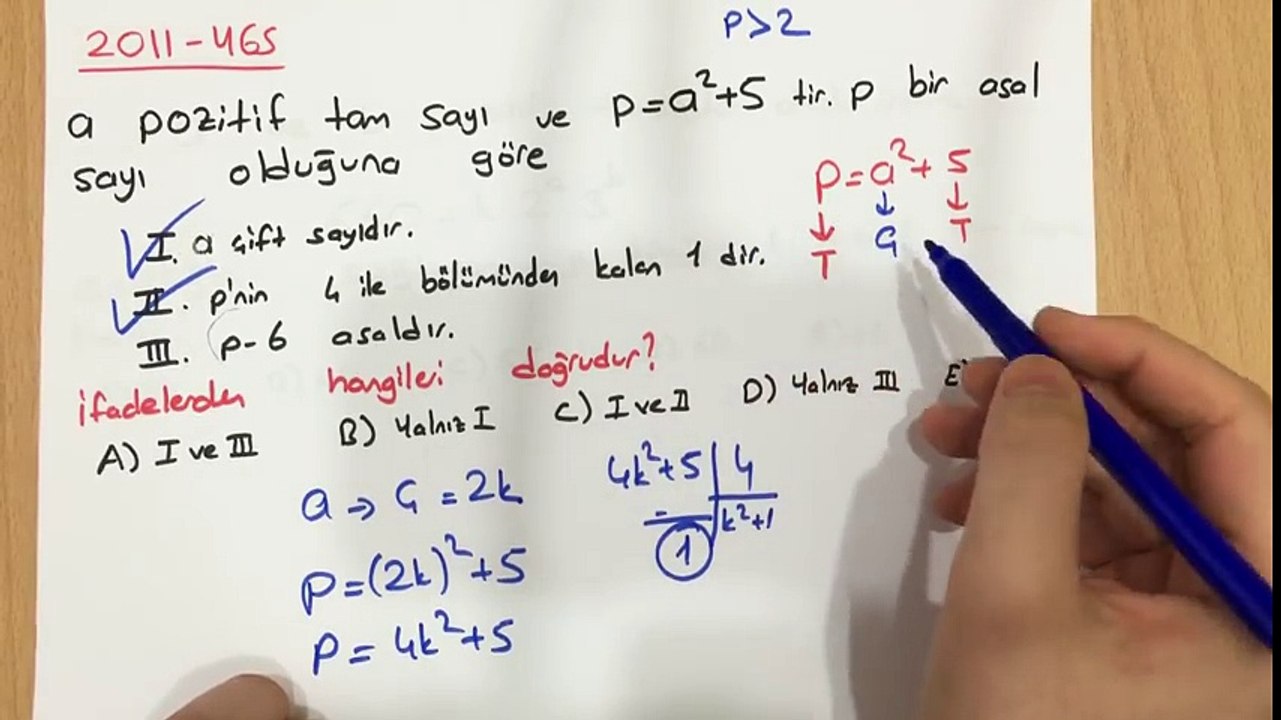 2011-YGS
P>2
a pozitif tam sayı ve p=a²+5 tir. p bir asal
sayı olduğuna göre
P=a²+5
T Ç T
I. a çift sayıdır.
II. p'nin 4 ile bölümünden kalan 1 dir.
III. p-6 asaldır.
ifadelerden hangileri doğrudur?
A) I ve III B) Yalnız I C) I ve II D) Yalnız III
a → Ç = 2k
4k²+5 | 4
k²+1
- 1
P=(2k)²+5
P=4k²+5